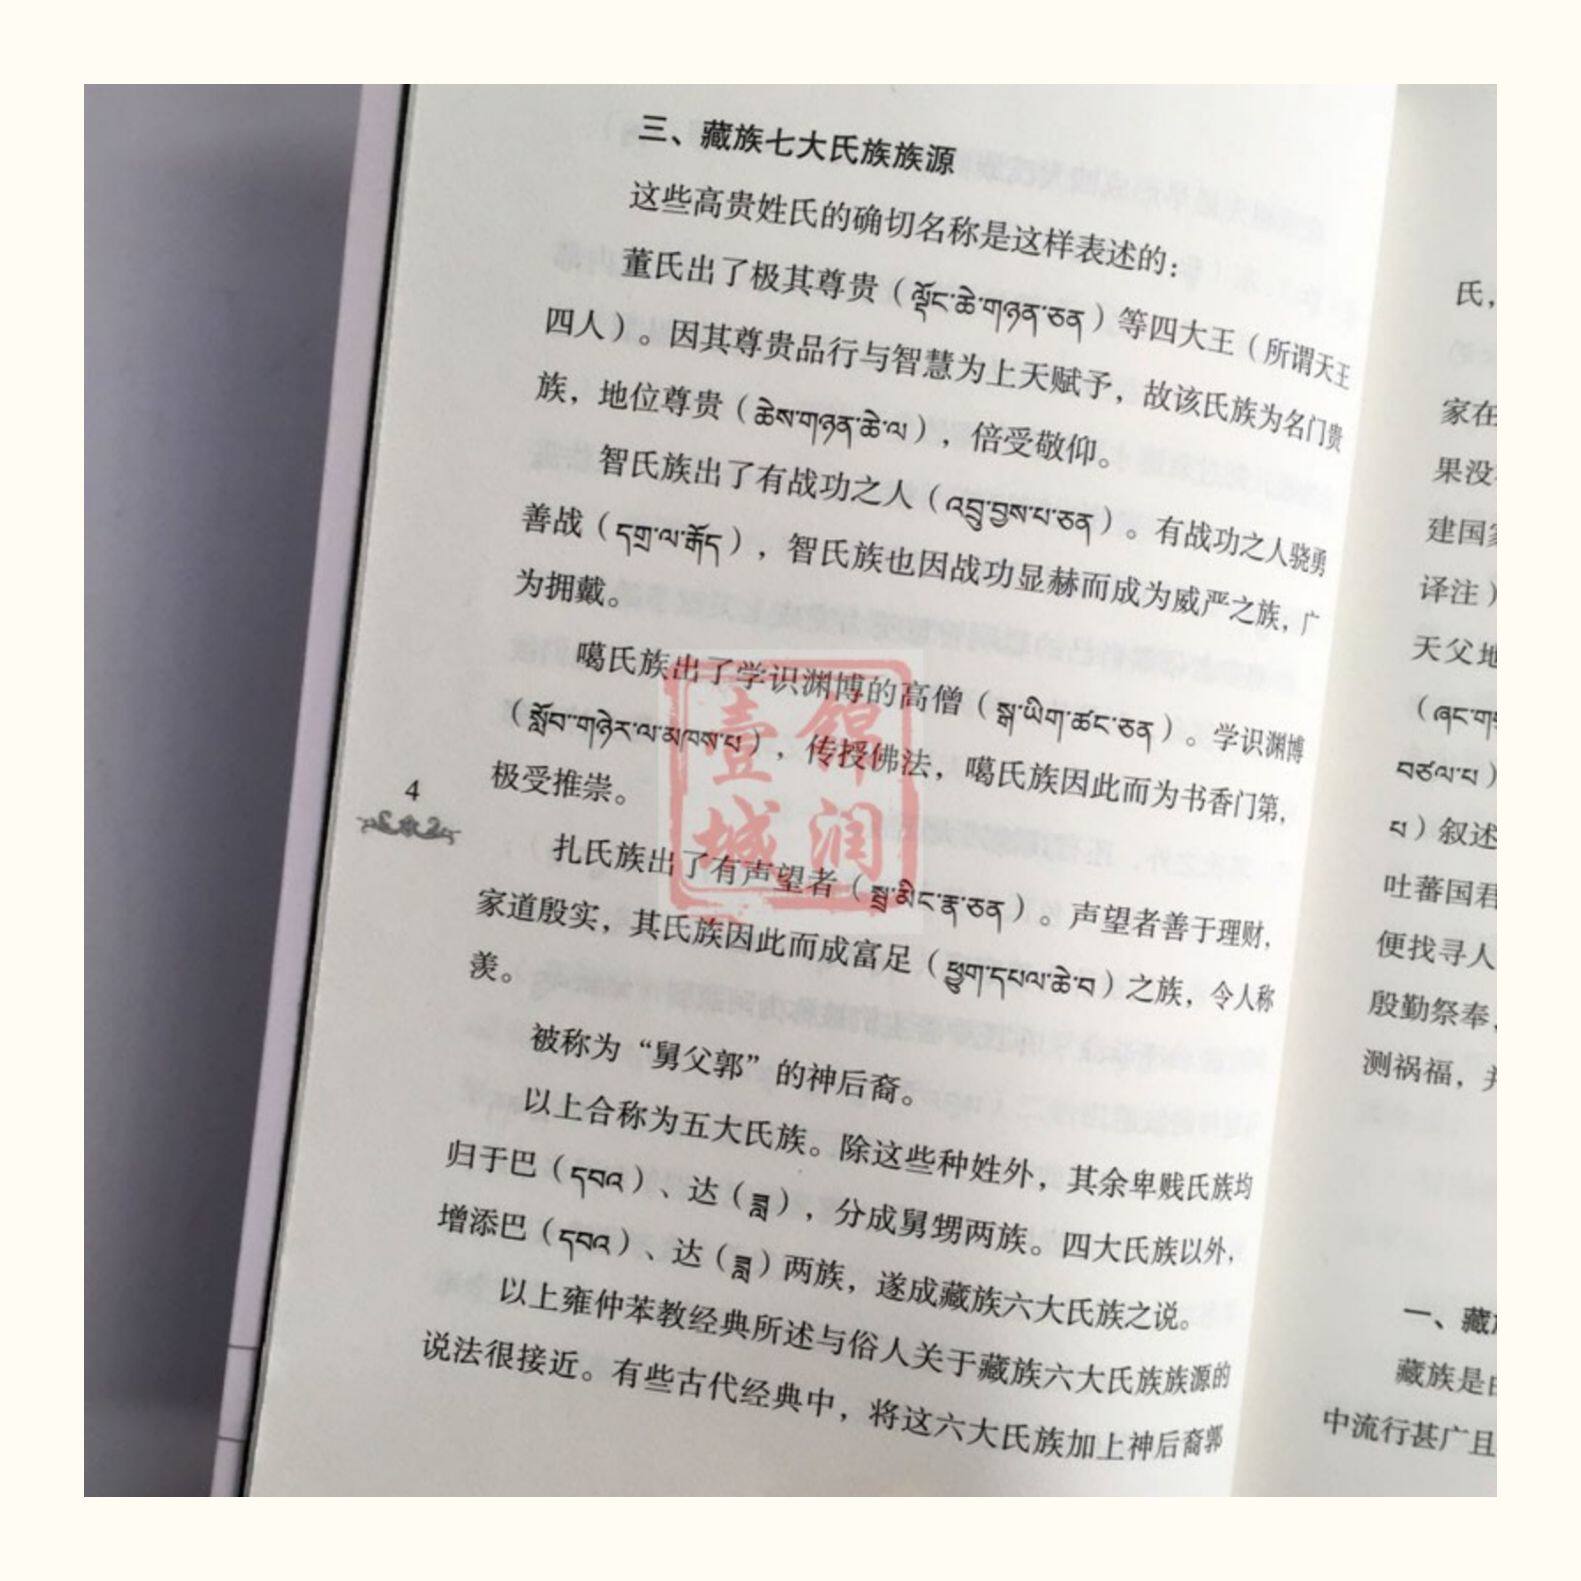 三、藏族七大氏族族源
这些高贵姓氏的确切名称是这样表述的：
董氏出了极其尊贵（ལྡོང་ཆེ་གཉན་ཅན）等四大王（所谓天王
四人）。因其尊贵品行与智慧为上天赋予，故该氏族为名门贵
族，地位尊贵（ཆེས་གཉན་ཆེ་ལ），倍受敬仰。
智氏族出了有战功之人（འབྲུ་བྱས་པ་ཅན）。有战功之人骁勇
善战（དགྲ་ལ་རྒོད），智氏族也因战功显赫而成为威严之族，广
为拥戴。
噶氏族出了学识渊博的高僧（སྒ་ཡིག་ཚང་ཅན）。学识渊博
（སློབ་གཉེར་ལ་མཁས་པ），传授佛法，噶氏族因此而为书香门第，
极受推崇。
扎氏族出了有声望者（སྦྲ་མིང་ན་ཅན）。声望者善于理财，
家道殷实，其氏族因此而成富足（ཕྱུག་དཔལ་ཆེ་བ）之族，令人称
羡。
被称为“舅父郭”的神后裔。
以上合称为五大氏族。除这些种姓外，其余卑贱氏族均
归于巴（དབའ）、达（ཟླ），分成舅甥两族。四大氏族以外，
增添巴（དབའ）、达（ཟླ）两族，遂成藏族六大氏族之说。
以上雍仲苯教经典所述与俗人关于藏族六大氏族族源的
说法很接近。有些古代经典中，将这六大氏族加上神后裔郭
4
壹锦
城润
氏，
家在
果没
建国
译注）
天父地
བཙལ་པ）
པ）叙述
吐蕃国君
便找寻人
殷勤祭奉，
测祸福，
一、藏
藏族是
中流行甚广且